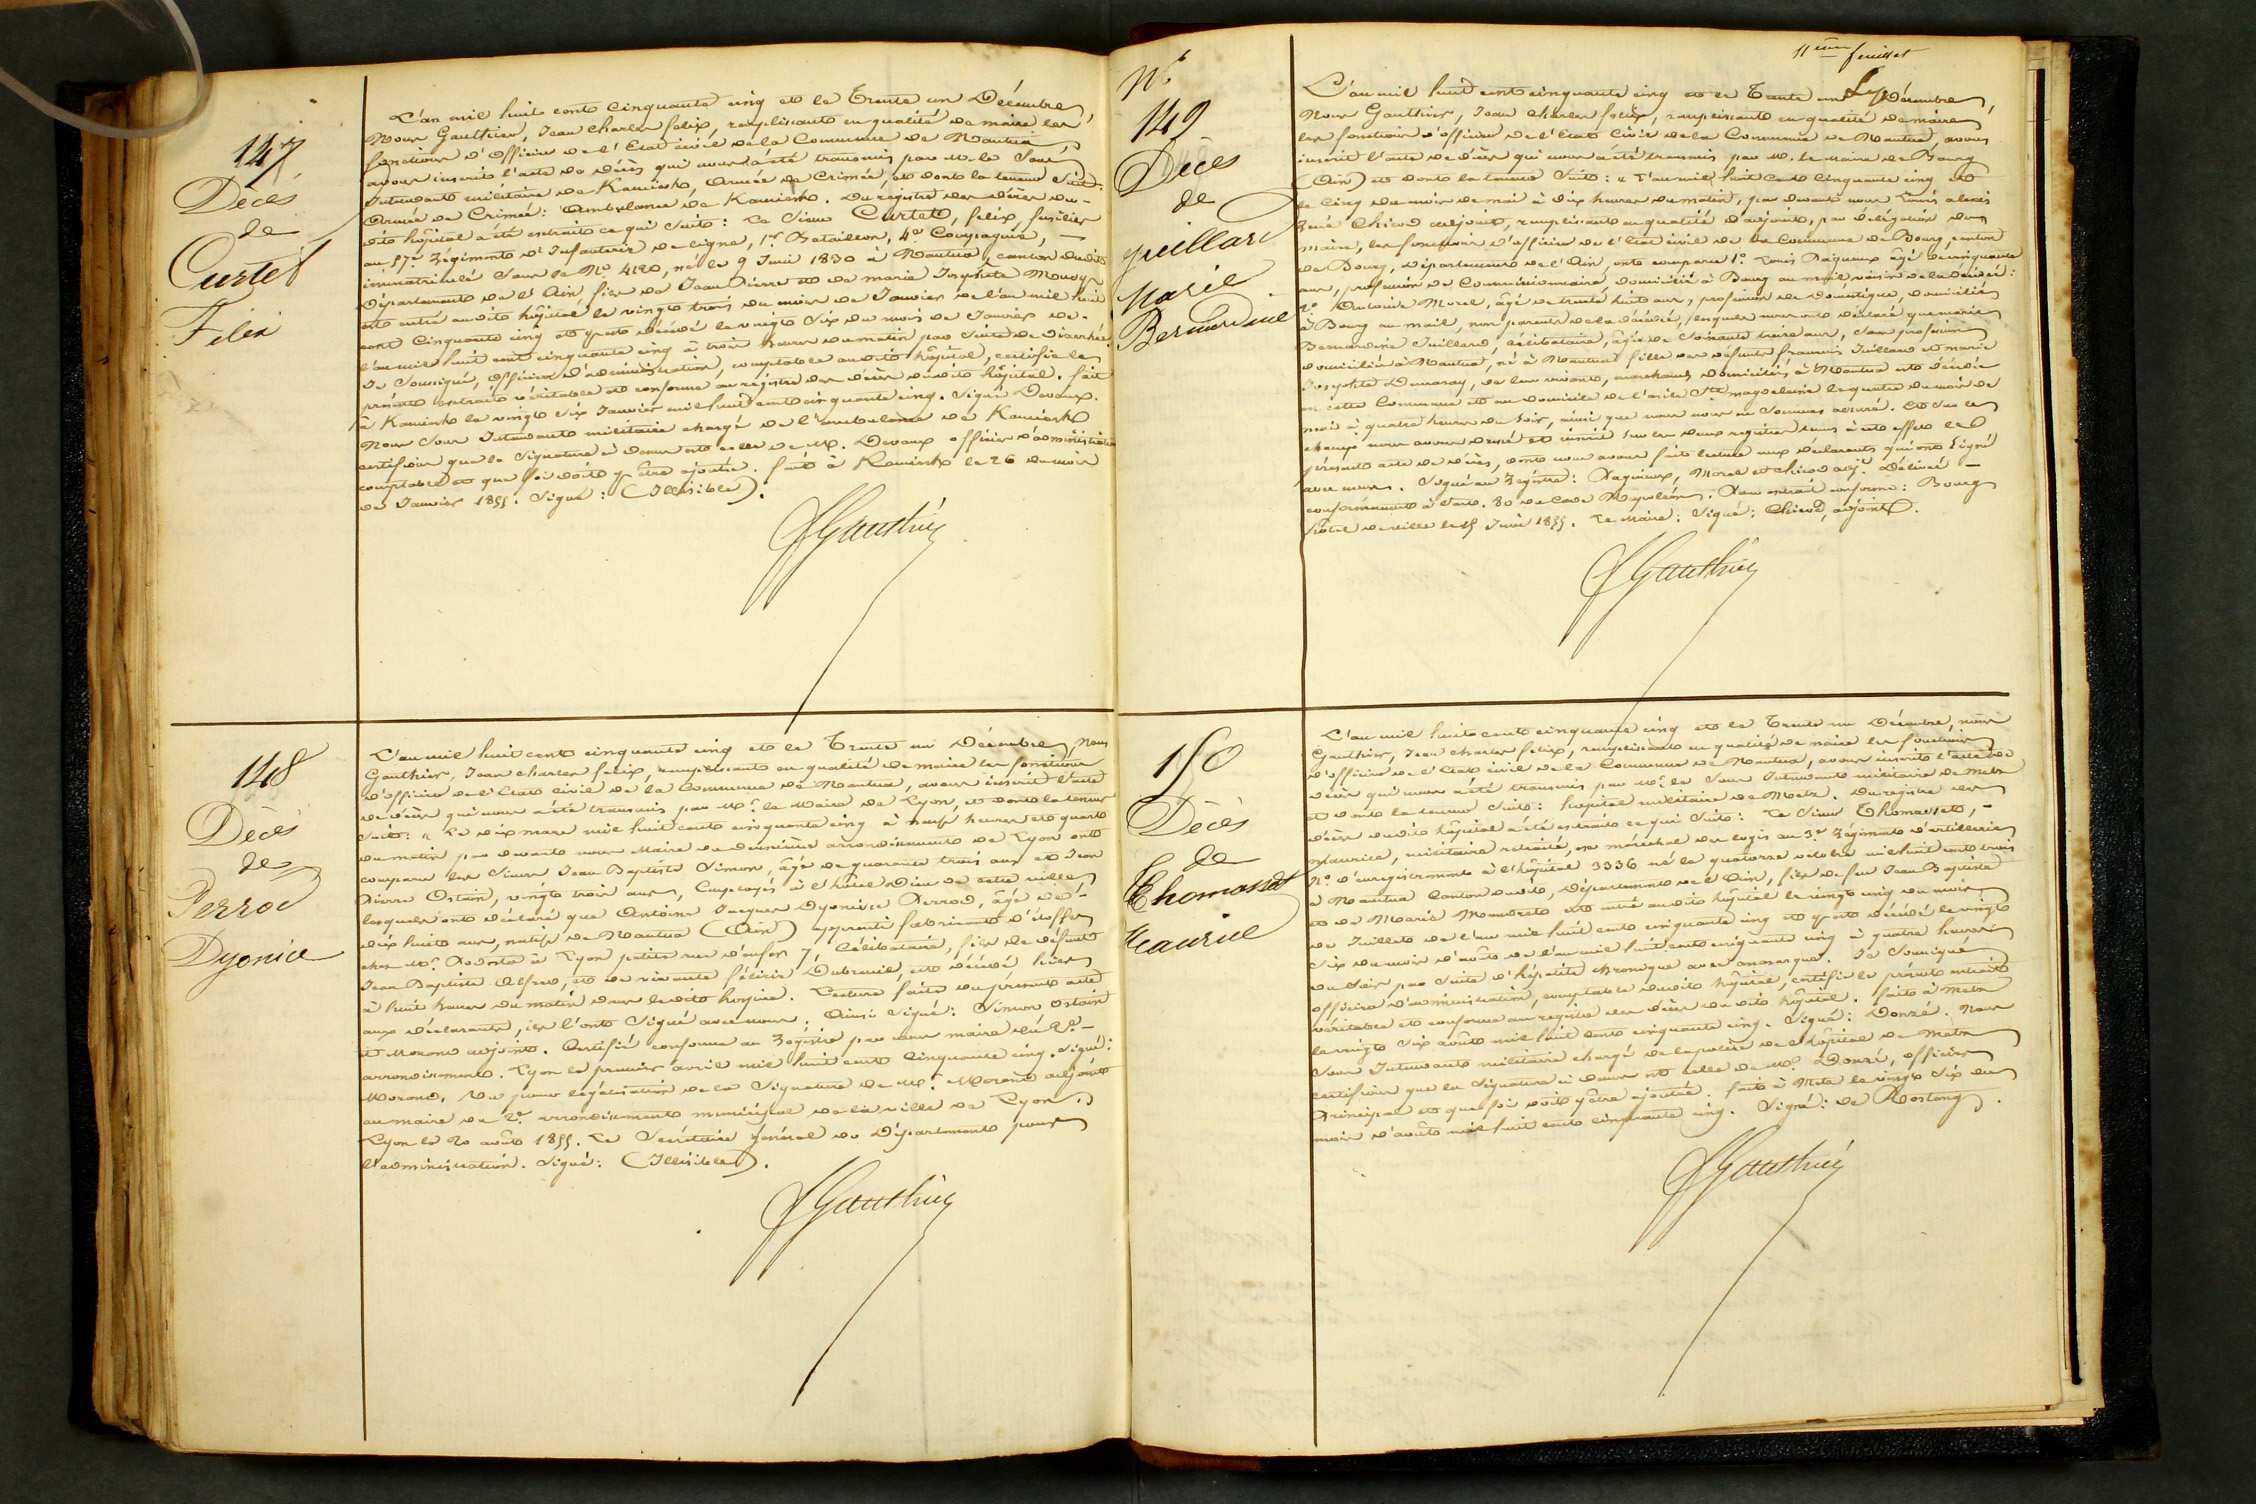 147
Décès
de
Curtet
Félix
L'an mil huit cent cinquante cinq et le Trente un Décembre,
Nous Gauthier, Jean Charles felix, remplissant en qualité de maire les
fonctions d'officier de l'Etat civil de la Commune de Nantua,
avons inscrit l'acte de décès qui nous a été transmis par M. le Sous
Intendant militaire de Kamiesh, Armée de Crimée, et dont la teneur suit:
Armée de Crimée: Ambulance de Kamiesh. Du registre des décès du-
dit hôpital a été extrait ce qui suit: Le Sieur Curtet, felix, fusilier
au 57e Régiment d'Infanterie de ligne, 1er Bataillon, 4e Compagnie,
immatriculé sous le No 4120, né le 9 Juin 1830 à Nantua, canton dudit
Département de l'Ain, fils de Jean Pierre et de marie Josephte
est entré audit hôpital le vingt trois du mois de Janvier de l'an mil huit
cent cinquante cinq et y est décédé le vingt six du mois de Janvier de
l'an mil huit cent cinquante cinq à trois heures du matin par suite de diarrhée.
Je soussigné, officier d'administration, comptable audit hôpital, certifie le
présent extrait véritable et conforme au registre des décès dudit hôpital. fait
à Kamiesh le vingt six Janvier mil huit cent cinquante cinq. Signé Devaux.
Nous Sous Intendant militaire chargé de l'ambulance de Kamiesh
certifions que la signature ci dessus est celle de M. Devaux officier d'administration
comptable et que foi doit y être ajoutée. fait à Kamiesh le 26 du mois
de Janvier 1855. Signé: (Illisible).
Gauthier
148
Décès
de
Perrod
Dyonice
L'an mil huit cent cinquante cinq et le Trente un Décembre, Nous
Gauthier, Jean charles felix, remplissant en qualité de maire les fonctions
d'officier de l'Etat civil de la Commune de Nantua, avons inscrit l'acte
de décès qui nous a été transmis par Mr le Maire de Lyon, et dont la teneur
suit: "Le dix mars mil huit cent cinquante cinq à neuf heures et quart
du matin par devant nous Maire du deuxième arrondissement de Lyon ont
comparu les Sieurs Jean Baptiste Simon, âgé de quarante trois ans et Jean
Pierre Ostain, vingt trois ans, Employés à l'hôtel Dieu de cette ville
lesquels ont déclaré que Antoine Jacques Dyonice Perrod, âgé de
dix huit ans, natif de Nantua (Ain) apprenti fabricant d'étoffes
chez Mr à Lyon petite rue 7, Célibataire, fils de défunt
Jean Baptiste Alfred, et de vivante félicie Dubreuil, est décédé hier
à huit heures du matin dans ledit hospice. Lecture faite du présent acte
aux déclarants, ils l'ont signé avec nous. Ainsi signé: Simon Ostain
et Morand adjoint. Certifié conforme au Régistre par nous maire du 2e
arrondissement. Lyon le premier avril mil huit cent cinquante cinq. Signé:
Morand. Vu pour légalisation de la signature de Mr Morand adjoint
au maire du 2e arrondissement municipal de la ville de Lyon.
Lyon le 20 août 1855. Le Secrétaire général du Département pour
l'administration. Signé: (Illisible).
Gauthier
11ème feuillet
No
149
Décès
de
juillard
Marie
Bernardine
L'an mil huit cent cinquante cinq et le Trente un Décembre,
Nous Gauthier, Jean charles felix, remplissant en qualité de maire
les fonctions d'officier de l'Etat civil de la Commune de Nantua, avons
inscrit l'acte de décès qui nous a été transmis par M. le maire de Bourg
(Ain) et dont la teneur suit: "L'an mil huit cent cinquante cinq et
le cinq du mois de mai à dix heures du matin, par devant nous Louis alexis
René Chicod adjoint, remplissant en qualité d'adjoint, par délégation du
maire, les fonctions d'officier de l'Etat civil de la Commune de Bourg, canton
de Bourg, département de l'Ain, ont comparu 1o Louis âgé de cinquante
ans, profession de Commissionnaire, domicilié à Bourg au mail, voisin de la décédée:
2o Antoine Morel, âgé de trente huit ans, profession de Domestique, domicilié
à Bourg au mail, non parents de la décédée, lesquels nous ont déclaré que marie
Bernardine Juillard, célibataire, âgée de soixante treize ans, sans profession
domiciliée à Nantua, né à Nantua fille des défunts francois Juillard et marie
Josephte , de leur vivant, marchands domiciliés à Nantua est décédée
en cette Commune et au domicile de l'asile Ste magdelaine le quatre du mois de
mai à quatre heures du soir, ainsi que nous nous en sommes assuré. Et sur le
champ nous avons dressé et inscrit sur les deux registres tenus à cet effet le
présent acte de décès, dont nous avons fait lecture aux déclarants qui ont signé
avec nous. Signé au Régistre: , Morel et chicod adjt. Délivré
conformément à l'art. 80 du Code Napoléon. Pour extrait conforme: Bourg
hôtel de ville le 15 Juin 1855. Le maire: Signé: Chicod, adjoint.
Gauthier
150
Décès
de
Thomasset
Maurice
L'an mil huit cent cinquante cinq et le Trente un Décembre, nous
Gauthier, Jean charles felix, remplissant en qualité de maire les fonctions
d'officier de l'Etat civil de la Commune de Nantua, avons inscrit l'acte de
décès qui nous a été transmis par Mr le Sous Intendant militaire de Metz
et dont la teneur suit: hopital militaire de Metz. Du registre des
décès dudit hôpital a été extrait ce qui suit: Le Sieur Thomasset,
Maurice, militaire retraité, ex maréchal des logis au 3e Régiment d'artillerie
No d'enregistrement à l'hôpital 3336 né le quatorze octobre mil huit cent trois
à Nantua Canton dudit, Département de l'Ain, fils de feu Jean Baptiste
et de Marie est entré audit hôpital le vingt cinq du mois
de Juillet de l'an mil huit cent cinquante cinq et y est décédé le vingt
six du mois d'août de l'an mil huit cent cinquante cinq à quatre heures
du soir par suite d'hépatite chronique avec anasarque. Je soussigné
officier d'administration, comptable dudit hôpital, certifie le présent extrait
véritable et conforme au registre des décès dudit hôpital. fait à Metz
le vingt six août mil huit cent cinquante cinq. Signé: Donzé. Nous
Sous Intendant militaire chargé de la police de l'hôpital de Metz
certifions que la signature ci dessus est celle de Mr Donzé, officier
Principal et que foi doit y être ajoutée. fait à Metz le vingt six du
mois d'août mil huit cent cinquante cinq. Signé: de Rostang.
Gauthier